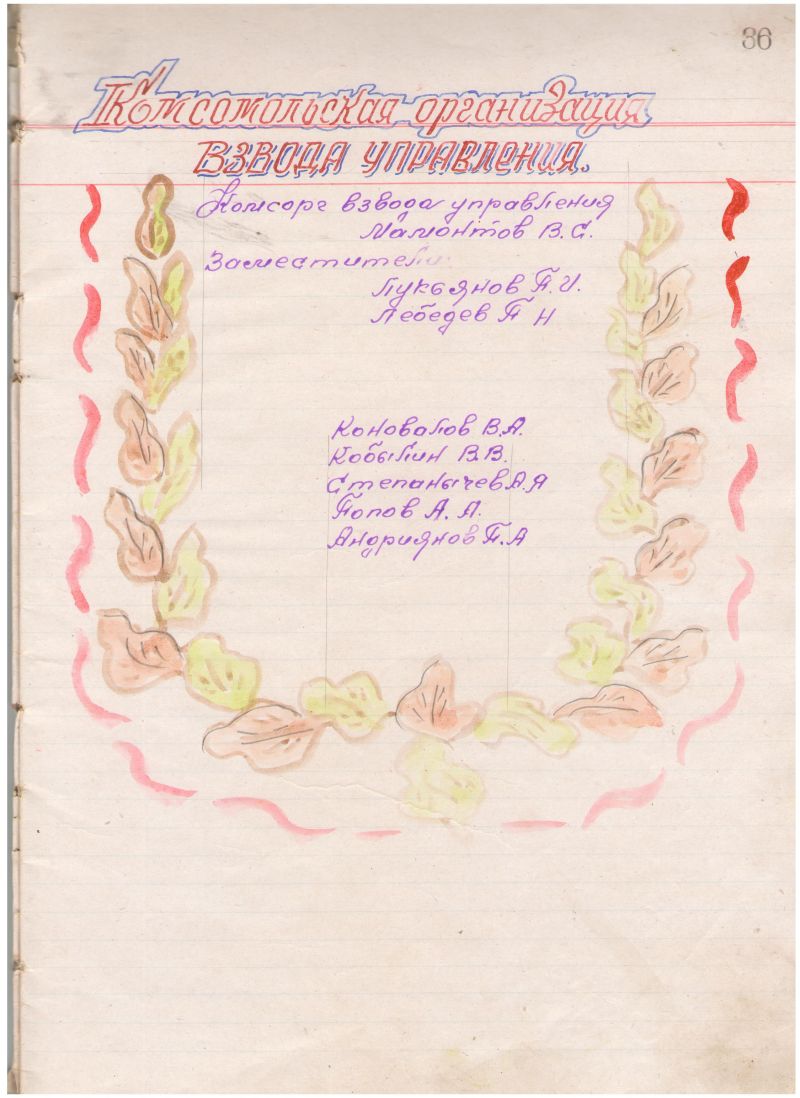 36
Комсомольская организация
ВЗВОДА УПРАВЛЕНИЯ.
Комсорг взвода управления
Мамонтов В.С.
Заместители:
Лукьянов П.И.
Лебедев П Н
Коновалов В.А.
Кобылин В.В.
Степанычев А.Я
Попов А. А.
Андриянов П.А